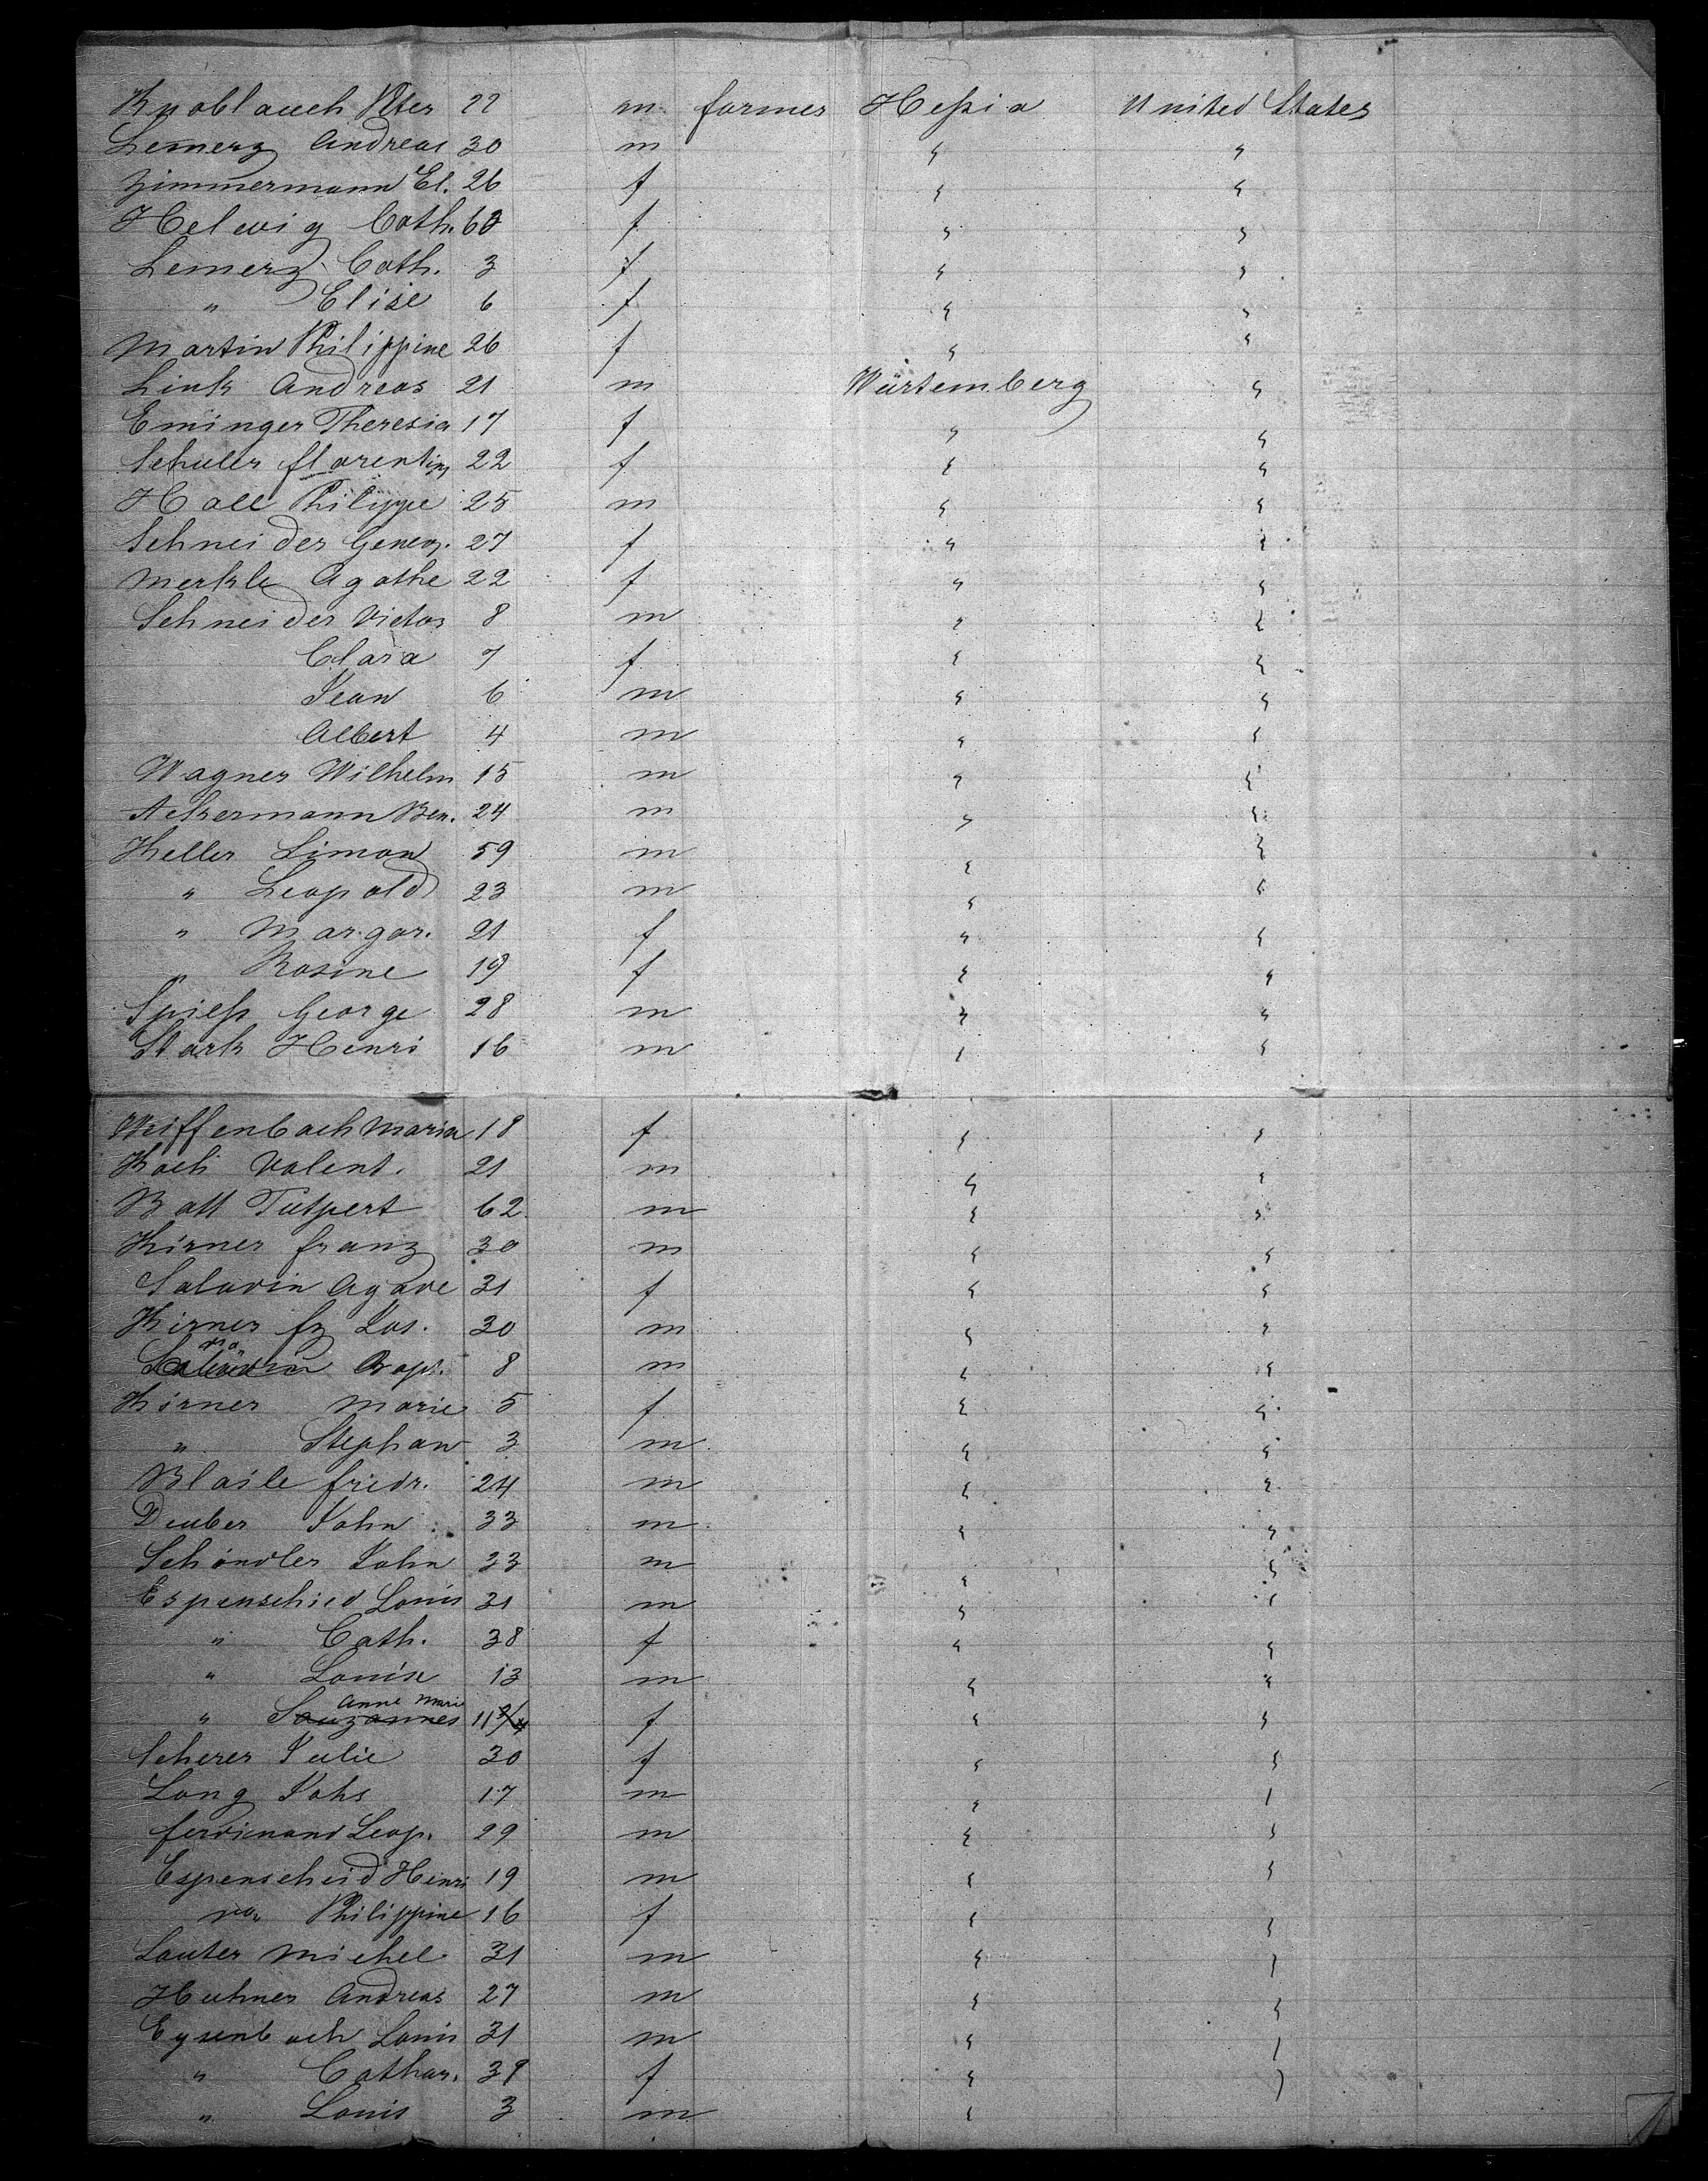 Knoblauch Peter 22 m farmer Heßia United States
Lemerz Andreas 30 m " "
Zimmermann El. 26 f " "
Helwig Cath. 60 f " "
Lemerz Cath. 3 f " "
" Elise 6 f " "
Martin Philippine 26 f " "
Link Andreas 21 m Würtemberg "
Eminger Theresia 17 f " "
Schuler florentine 22 f " "
Hall Philippe 25 m " "
Schneider Genev. 27 f " "
Merkle Agathe 22 f " "
Schneider Victor 8 m " "
Clara 7 f " "
Jean 6 m " "
Albert 4 m " "
Wagner Wilhelm 15 m " "
Ackermann Ben. 24 m " "
Keller Simon 59 m " "
" Leopold 23 m " "
" Margar. 21 f " "
" Rosine 19 f " "
Spieß George 28 m " "
Stark Henri 16 m " "
Wiffenbach Maria 18 f " "
Koch Valent. 21 m " "
Batt 62 m " "
Kirner franz 30 m " "
Saladin Agave 31 f " "
Kirner fz Jos. 30 m " "
Bapt. 8 m " "
Kirner Marie 5 f " "
" Stephan 3 m " "
Blaile friedr. 24 m " "
Deuber John 33 m " "
Schöndler John 33 m " "
Espenschied Louis 31 m " "
" Cath. 38 f " "
" Louis 13 m " "
" Anne Marie Sauzannes 11 f " "
Scherer Julie 30 f " "
Lang Johs 17 m " "
ferdinand Leop. 29 m " "
Espenscheid Henri 19 m " "
Philippine 16 f " "
Lauter Michel 31 m " "
Huhner Andreas 27 m " "
Eysenbach Louis 31 m " "
" Cathar. 39 f " "
" Louis 3 m "